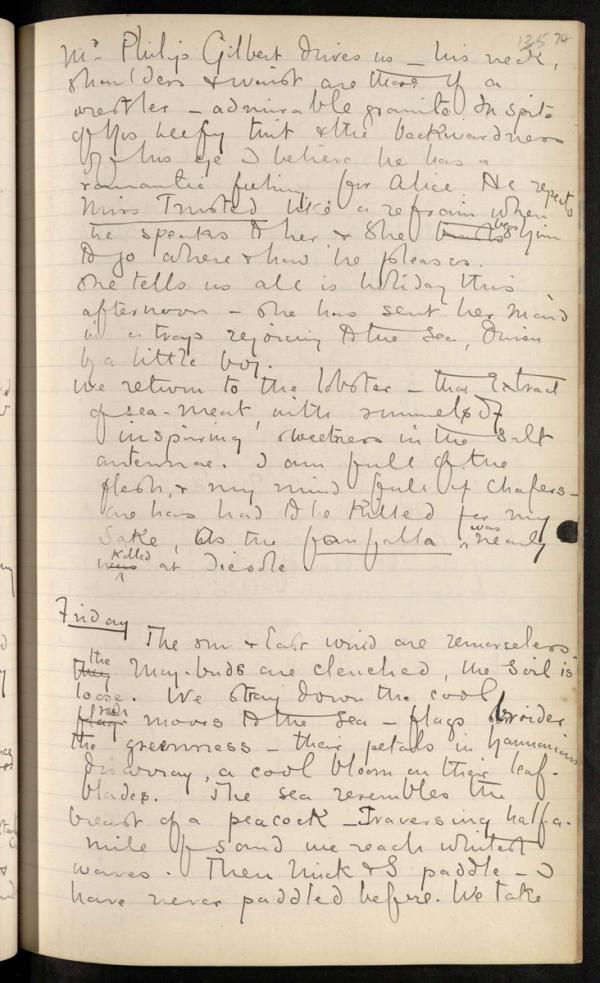 125 79
Mr Philip Gilbert drives us – his neck,
shoulders & waist are those of a
wrestler – admirable granite. In spite
of his beefy tint & the backwardness
of his eye I believe he has a
romantic feeling for Alice. He repeats
Miss Trusted like a refrain when
he speaks to her & she begs him
to go where & how he pleases.
She tells us all is holiday this
afternoon – she has sent her maid
in a trap rejoicing to the sea, driven
by a little boy.
We return to the lobster – that extract
of sea-meat, with runnels of
inspiring sweetness in the salt
antennae. I am full of the
flesh, & my mind full of chafers –
one has had to be killed for my
sake, as the farfalla was nearly
killed at Fiesole
Friday
The sun & East wind are remorseless.
the May-buds are clenched, the soil is
loose. We stray down the cool
moors to the sea – flags broider
the greenness – their petals in harmonious
disarray, a cool bloom on their leaf-
blades. The sea resembles the
breast of a peacock – Traversing half-a-
mile of sand we reach whitest
waves. Then Mick & I paddle – I
have never paddled before. We take